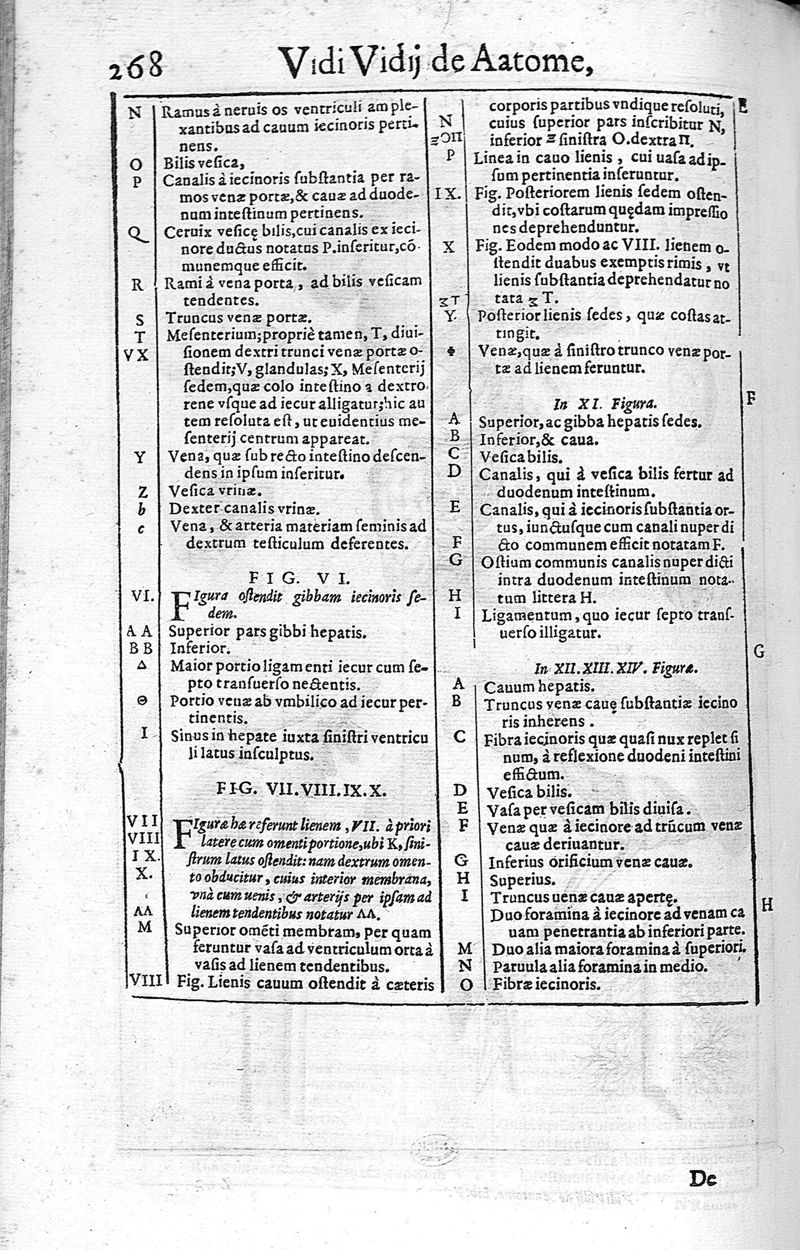 268 Vidi Vidij de Aatome,
N Ramus à neruis os ventriculi am ple-
xantibus ad cauum iecinoris perti-
nens.
O Bilis vesica,
P Canalis à iecinoris substantia per ra-
mos venæ portæ, & cauæ ad duode-
num intestinum pertinens.
Q Ceruix vesicę bilis, cui canalis ex ieci-
nore ductus notatus P. inseritur, cō-
munemque efficit.
R Rami à vena porta, ad bilis vesicam
tendentes.
S Truncus venæ portæ.
T Mesenterium; propriè tamen, T, diui-
VX sionem dextri trunci venæ portæ o-
stendit; V, glandulas; X, Mesenterij
sedem, quæ colo intestino a dextro
rene vsque ad iecur alligatur; hic au
tem resoluta est, ut euidentius me-
senterij centrum appareat.
Y Vena, quæ sub recto intestino descen-
dens in ipsum inseritur.
Z Vesica vrinæ.
b Dexter canalis vrinæ.
c Vena, & arteria materiam seminis ad
dextrum testiculum deferentes.
FIG. VI.
VI. FIgura ostendit gibbam iecinoris se-
dem.
A A Superior pars gibbi hepatis.
B B Inferior.
Δ Maior portio ligamenti iecur cum se-
pto transuerso nectentis.
Θ Portio venæ ab vmbilico ad iecur per-
tinentis.
I Sinus in hepate iuxta sinistri ventricu
li latus insculptus.
FIG. VII. VIII. IX. X.
VII FIguræ hæ referunt lienem, VII. à priori
VIII latere cum omenti portione, ubi K, sini-
IX. strum latus ostendit: nam dextrum omen-
X. to obducitur, cuius interior membrana,
vnà cum uenis, & arterijs per ipsam ad
ΛΛ lienem tendentibus notatur ΛΛ.
M Superior omēti membram, per quam
feruntur vasa ad ventriculum orta à
vasis ad lienem tendentibus.
VIII Fig. Lienis cauum ostendit à cæteris
corporis partibus vndique resoluti, E
N cuius superior pars inscribitur N,
ΞƆΠ inferior Ξ sinistra O. dextra Π.
P Linea in cauo lienis, cui uasa ad ip-
sum pertinentia inseruntur.
IX. Fig. Posteriorem lienis sedem osten-
dit, vbi costarum quędam impressio
nes deprehenduntur.
X Fig. Eodem modo ac VIII. lienem o-
stendit duabus exemptis rimis, vt
lienis substantia deprehendatur no
Σ T tata Σ T.
Y. Posterior lienis sedes, quæ costas at-
tingit.
Φ Venæ, quæ à sinistro trunco venæ por-
tæ ad lienem feruntur.
In XI. Figura. F
A Superior, ac gibba hepatis sedes.
B Inferior, & caua.
C Vesica bilis.
D Canalis, qui à vesica bilis fertur ad
duodenum intestinum.
E Canalis, qui à iecinoris substantia or-
tus, iunctusque cum canali nuper di
F cto communem efficit notatam F.
G Ostium communis canalis nuper dicti
intra duodenum intestinum nota-
H tum littera H.
I Ligamentum, quo iecur septo trans-
uerso illigatur.
G
In XII. XIII. XIV. Figuræ.
A Cauum hepatis.
B Truncus venæ cauę substantiæ iecino
ris inherens.
C Fibra iecinoris quæ quasi nux replet si
num, à reflexione duodeni intestini
effictum.
D Vesica bilis.
E Vasa per vesicam bilis diuisa.
F Venæ quæ à iecinore ad trūcum venæ
cauæ deriuantur.
G Inferius orificium venæ cauæ.
H Superius.
I Truncus uenæ cauæ apertę.
Duo foramina à iecinore ad venam ca H
uam penetrantia ab inferiori parte.
M Duo alia maiora foramina à superiori.
N Paruula alia foramina in medio.
O Fibræ iecinoris.
De